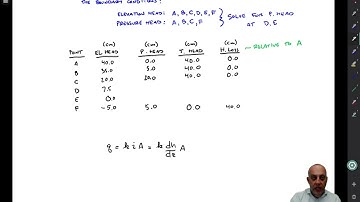 THE BOUNDARY CONDITIONS:
ELEVATION HEAD: A, B, C, D, E, F } SOLVE FOR P. HEAD
PRESSURE HEAD: A, B, C, F } AT D, E
(cm) (cm) (cm) (cm)
POINT EL. HEAD P. HEAD T. HEAD H. LOSS ~ RELATIVE TO A
A 40.0 0.0 40.0 0.0
B 35.0 5.0 40.0 0.0
C 20.0 20.0 40.0 0.0
D 7.5
E 0.0
F -5.0 5.0 0.0 40.0
q = k i A = k dh/dz A